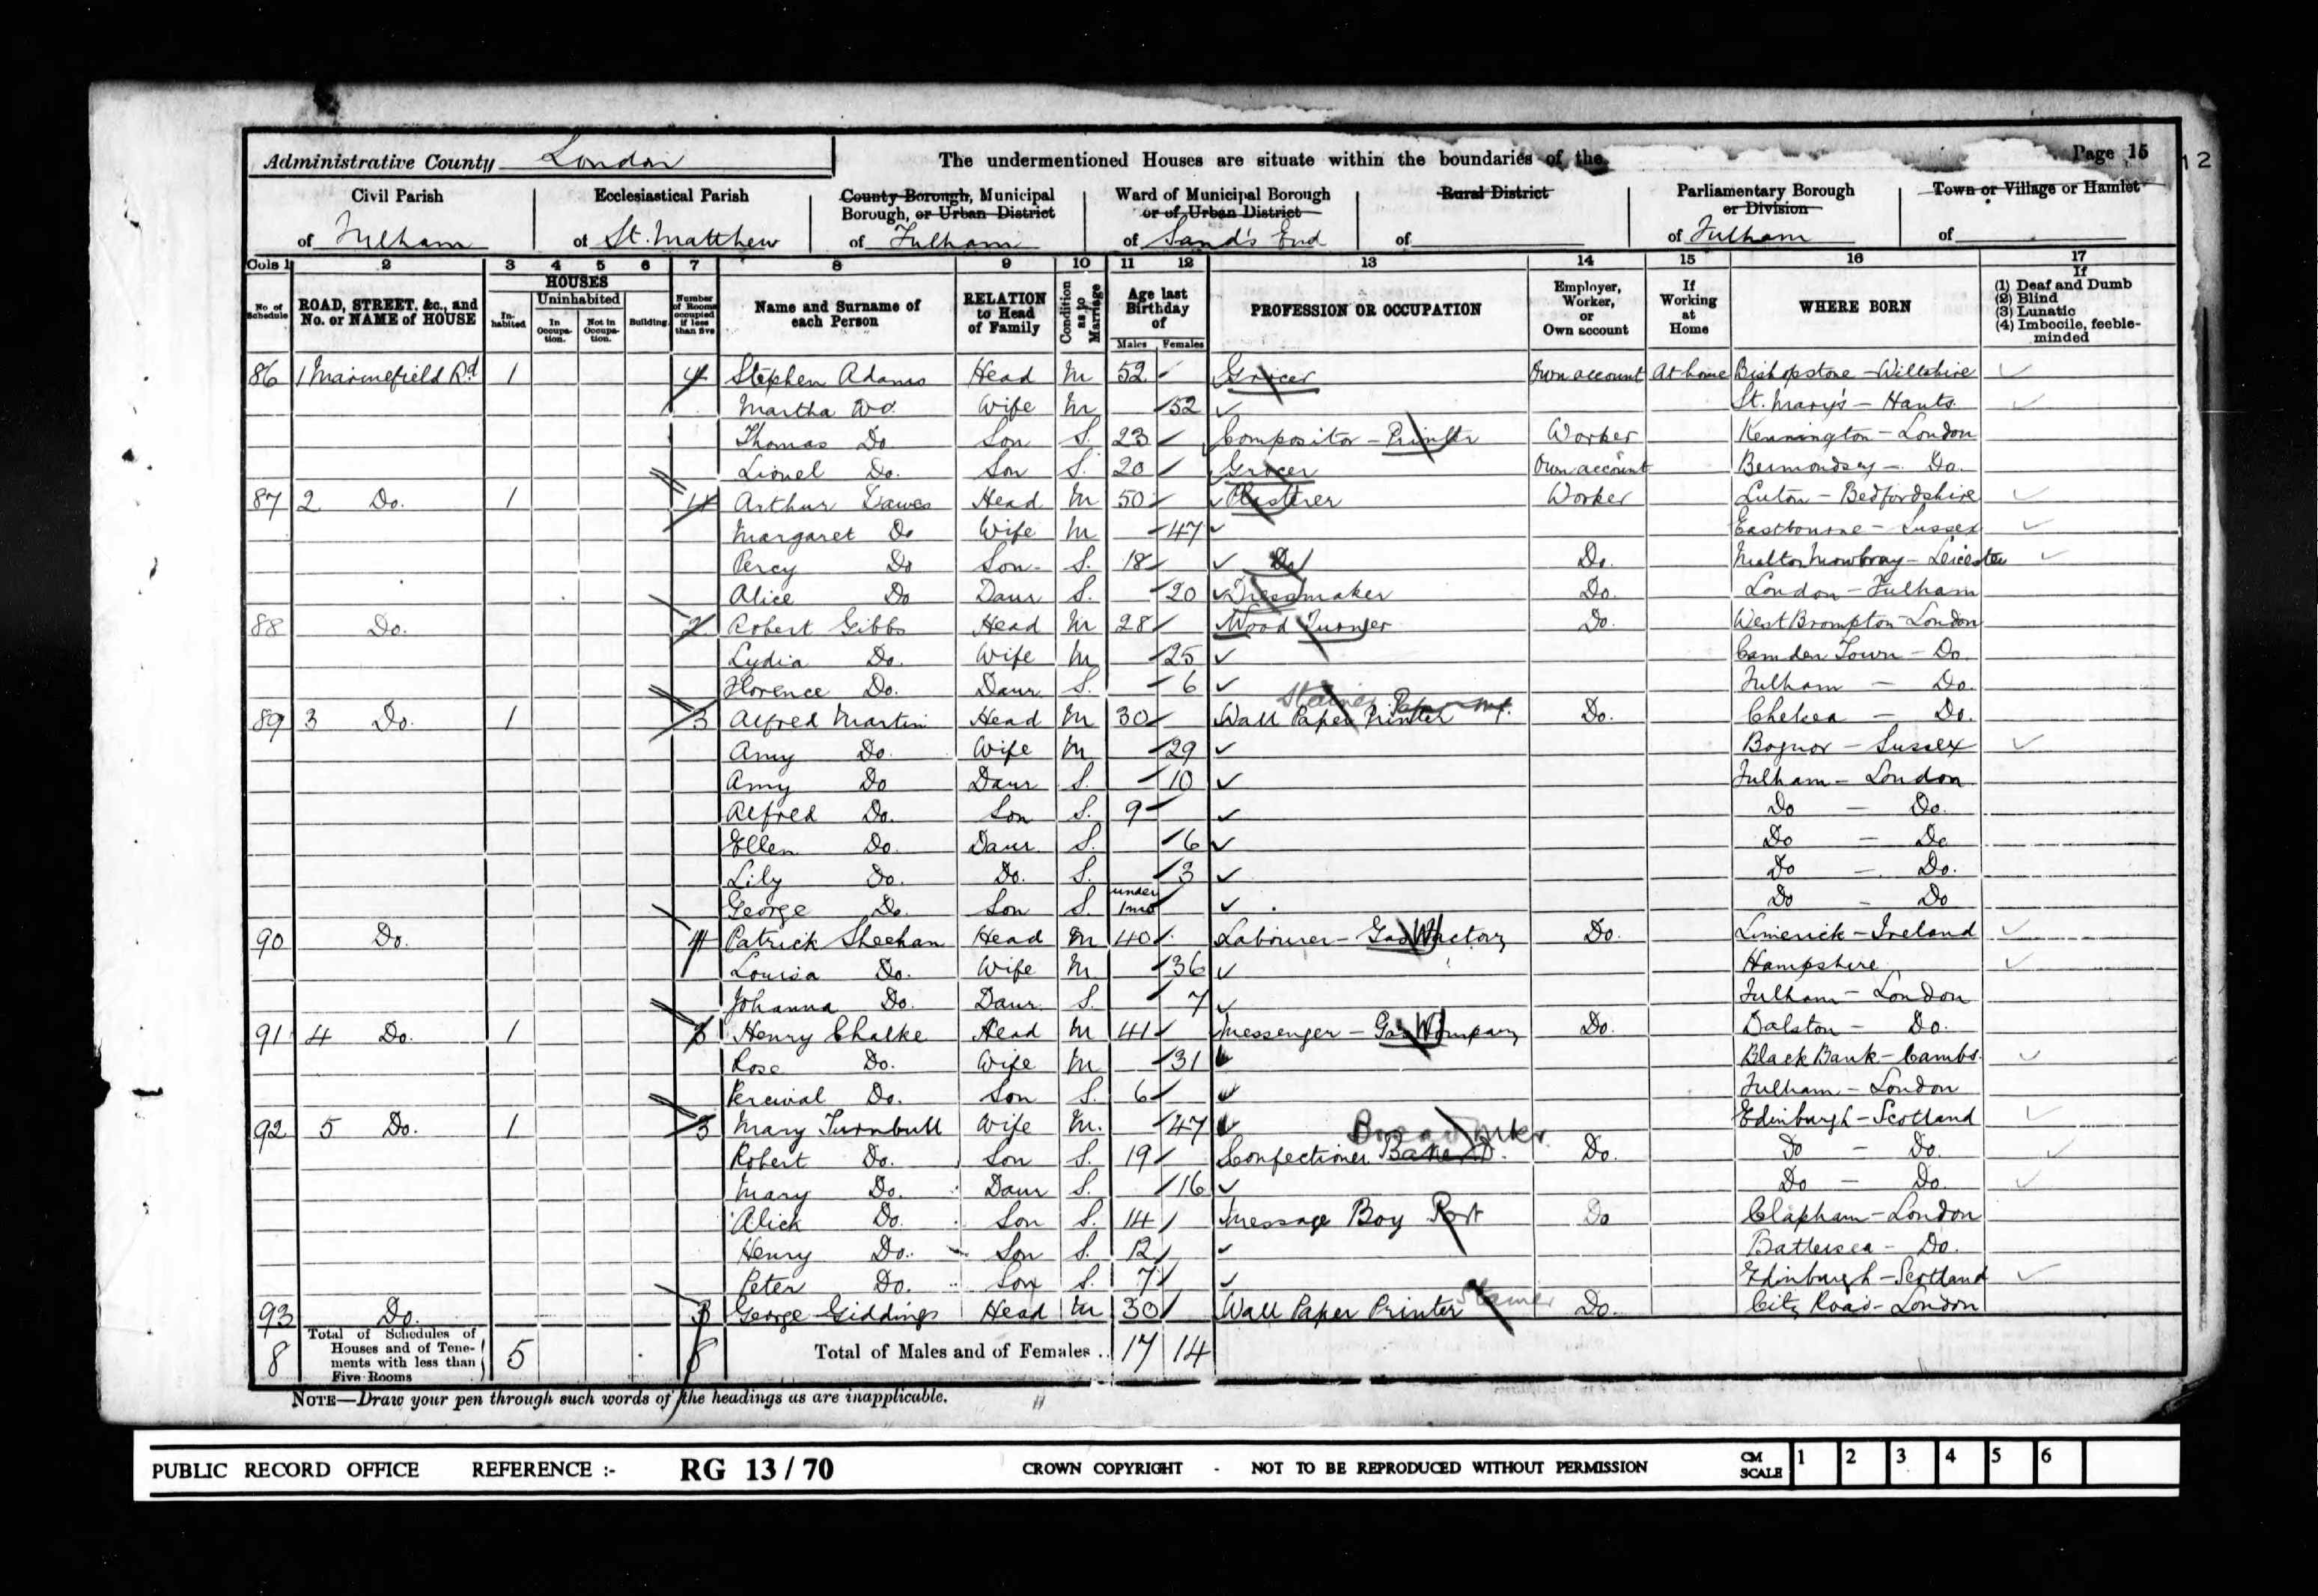 Administrative County London The undermentioned Houses are situate within the boundaries of the Page 15
12
Civil Parish of Fulham
Ecclesiastical Parish of St. Matthew
County Borough, Municipal Borough, or Urban District of Fulham
Ward of Municipal Borough or of Urban District of Sand's End
Rural District of
Parliamentary Borough or Division of Fulham
Town or Village or Hamlet of
Cols 1 2 3 4 5 6 7 8 9 10 11 12 13 14 15 16 17
No. of Schedule
ROAD, STREET, &c., and No. or NAME of HOUSE
HOUSES
Inhabited
Uninhabited
In Occupation.
Not in Occupation.
Building
Number of Rooms occupied if less than five
Name and Surname of each Person
RELATION to Head of Family
Condition as to Marriage
Age last Birthday of
Males Females
PROFESSION OR OCCUPATION
Employer, Worker, or Own account
If Working at Home
WHERE BORN
If
(1) Deaf and Dumb
(2) Blind
(3) Lunatic
(4) Imbecile, feeble-minded
86 1 Marinefield Rd 1 4 Stephen Adams Head M 52 Grocer Own account At home Bishopstone - Wiltshire
Martha Do. Wife M 52 St. Mary's - Hants.
Thomas Do Son S. 23 Compositor - Printer Worker Kennington - London
Lionel Do. Son S. 20 Grocer Own account Bermondsey - Do.
87 2 Do. 1 4 Arthur Dawes Head M 50 Plasterer Worker Luton - Bedfordshire
Margaret Do Wife M 47 Eastbourne - Sussex
Percy Do Son S. 18 Do Do. Melton Mowbray - Leicester
Alice Do Daur S. 20 Dressmaker Do. London - Fulham
88 Do. 2 Robert Gibbs Head M 28 Wood Turner Do. West Brompton - London
Lydia Do. Wife M 25 Camden Town - Do.
Florence Do. Daur S. 6 Fulham - Do.
Stainer
89 3 Do. 1 3 Alfred Martin Head M 30 Wall Paper Printer Do. Chelsea - Do.
Amy Do. Wife M 29 Bognor - Sussex
Amy Do Daur S. 10 Fulham - London
Alfred Do. Son S. 9 Do - Do.
Ellen Do. Daur. S. 6 Do - Do
Lily Do. Do. S. 3 Do - Do.
George Do. Son S. under 1 mo Do - Do
90 Do. 4 Patrick Sheehan Head M 40 Labourer - Gas Factory Do. Limerick - Ireland
Louisa Do. Wife M 36 Hampshire
Johanna Do. Daur. S. 7 Fulham - London
91 4 Do. 1 3 Henry Chalke Head M 41 Messenger - Gas Company Do. Dalston - Do.
Rose Do. Wife M 31 Black Bank - Cambs.
Percival Do. Son S. 6 Fulham - London
92 5 Do. 1 3 Mary Turnbull Wife M. 47 Edinburgh - Scotland
Bread Mkr.
Robert Do. Son S. 19 Confectioner Baker Do. Do - Do.
Mary Do. Daur S. 16 Do - Do.
Alick Do. Son S. 14 Message Boy Post Do Clapham - London
Henry Do. Son S. 12 Battersea - Do.
Peter Do. Son S. 7 Edinburgh - Scotland
93 Do. 3 George Giddings Head M 30 Wall Paper Printer Stainer Do. City Road - London
8 Total of Schedules of Houses and of Tenements with less than Five Rooms 5 8 Total of Males and of Females .. 17 14
NOTE—Draw your pen through such words of the headings as are inapplicable.
PUBLIC RECORD OFFICE REFERENCE :- RG 13 / 70 CROWN COPYRIGHT - NOT TO BE REPRODUCED WITHOUT PERMISSION CM SCALE 1 2 3 4 5 6